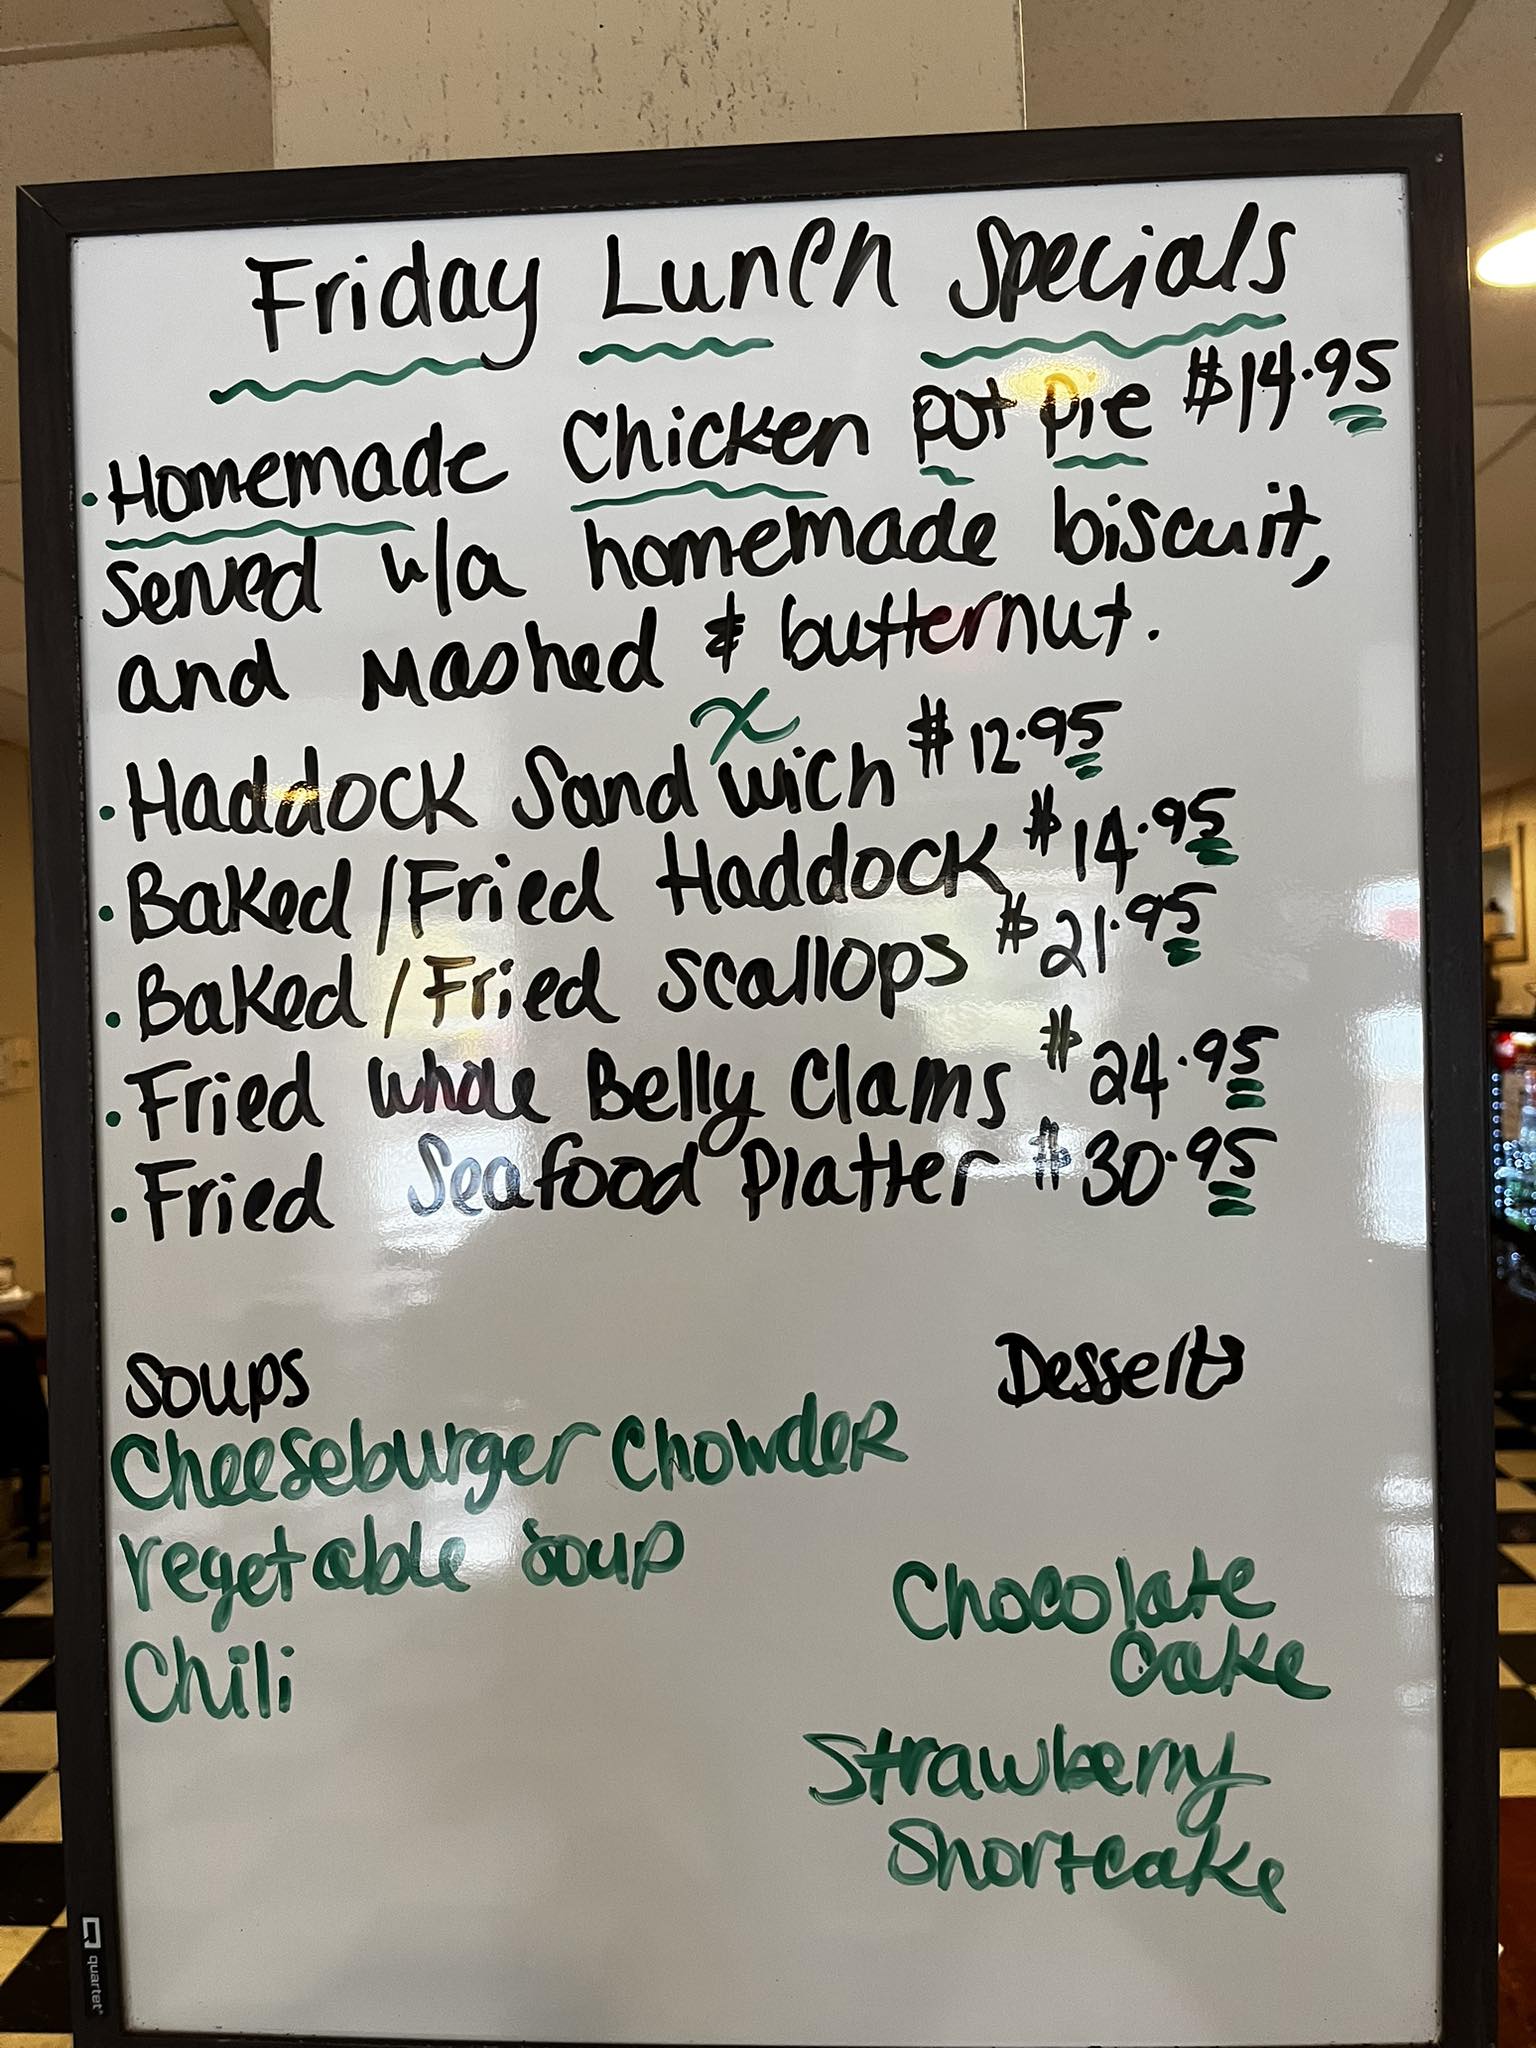 Friday Lunch Specials
• Homemade Chicken pot pie $14.95
served w/a homemade biscuit,
and mashed & butternut.
x
• Haddock Sandwich $12.95
• Baked/Fried Haddock $14.95
• Baked/Fried scallops $21.95
• Fried whole Belly Clams $24.95
• Fried Seafood Platter $30.95
Soups
Cheeseburger Chowder
vegetable soup
Chili
Desserts
Chocolate
Cake
Strawberry
Shortcake
quartet